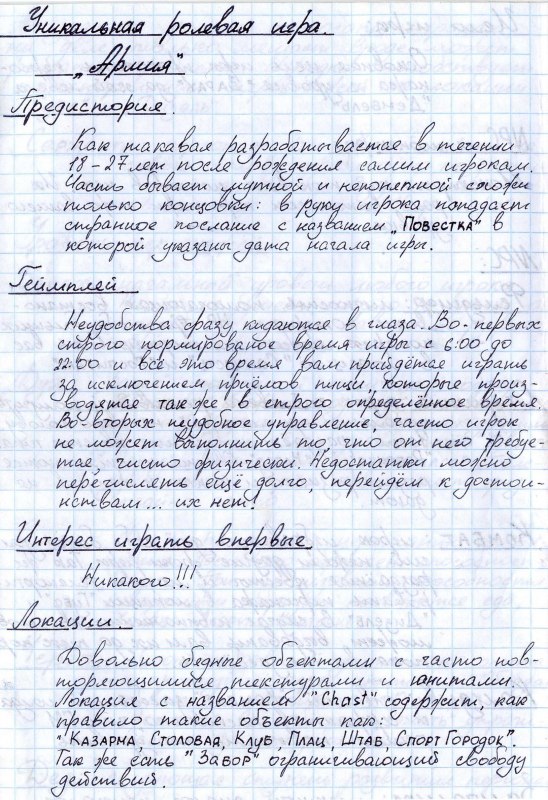 Уникальная ролевая игра.
„Армия"
Предистория.
Как такавая разрабатывается в течении
18-27 лет после рождения самим игрокам.
Часть бывает мутной и непонятной схожи
только концовки: в руку игрока попадает
странное послание с названием „Повестка" в
которой указаны дата начала игры.
Геймплей
Неудобства сразу кидаются в глаза. Во-первых
строго нормированое время игры с 6:00 до
22:00 и всё это время вам прийдётся играть
за исключением приёмов пищи, которые произ-
водятся так же в строго определённое время.
Во-вторых неудобное управление, часто игрок
не может выполнить то, что от него требуе-
тся, чисто физически. Недостатки можно
перечислять ещё долго, перейдём к достои-
нствам... их нет!
Интерес играть впервые
Никакого!!!
Локации.
Довольно бедные объектами с часто пов-
торяющимися текстурами и юнитами.
Локация с названием "Chast" содержит, как
правило такие объекты как:
"Казарма, Столовая, Клуб, Плац, Штаб, Спорт Городок".
Так же есть "Забор" ограничивающий свободу
действий.